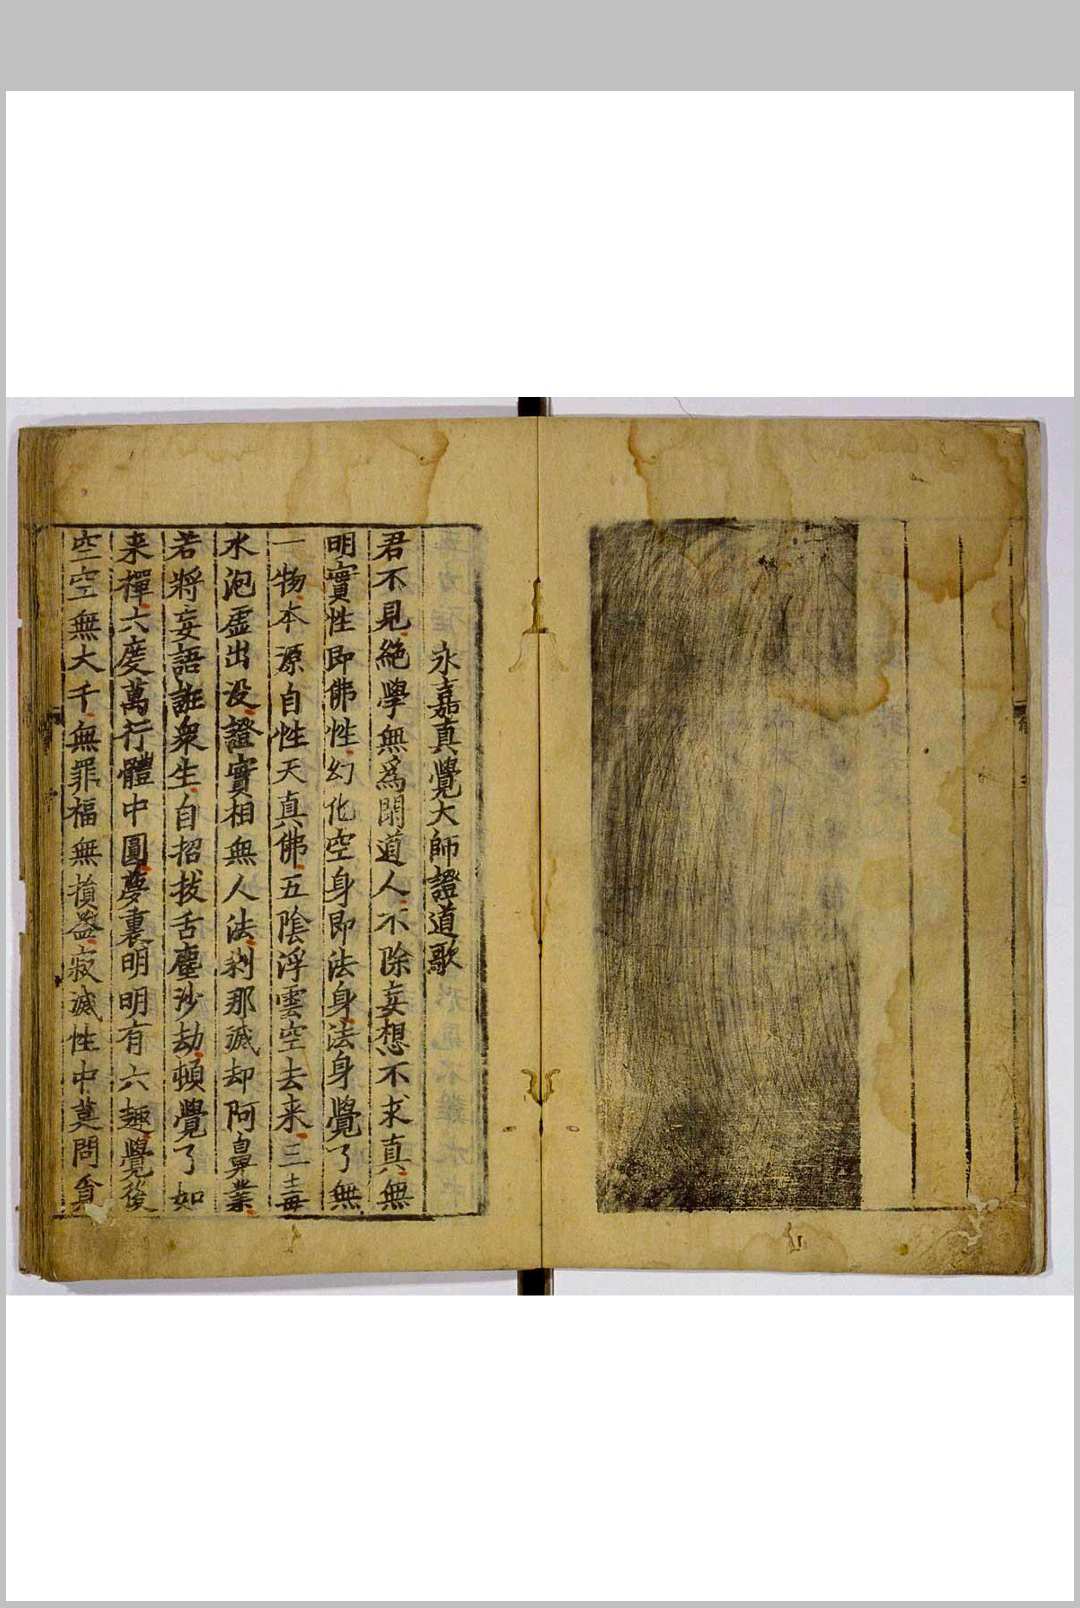 永嘉真覺大師證道歌
君不見絶學無爲閑道人不除妄想不求真無
明實性即佛性幻化空身即法身法身覺了無
一物本源自性天真佛五陰浮雲空去来三毒
水泡虛出没證實相無人法剎那滅却阿鼻業
若將妄語誑衆生自招拔舌塵沙劫頓覺了如
来禪六度萬行體中圓夢裏明明有六趣覺後
空空無大千無罪福無損益寂滅性中莫問覓